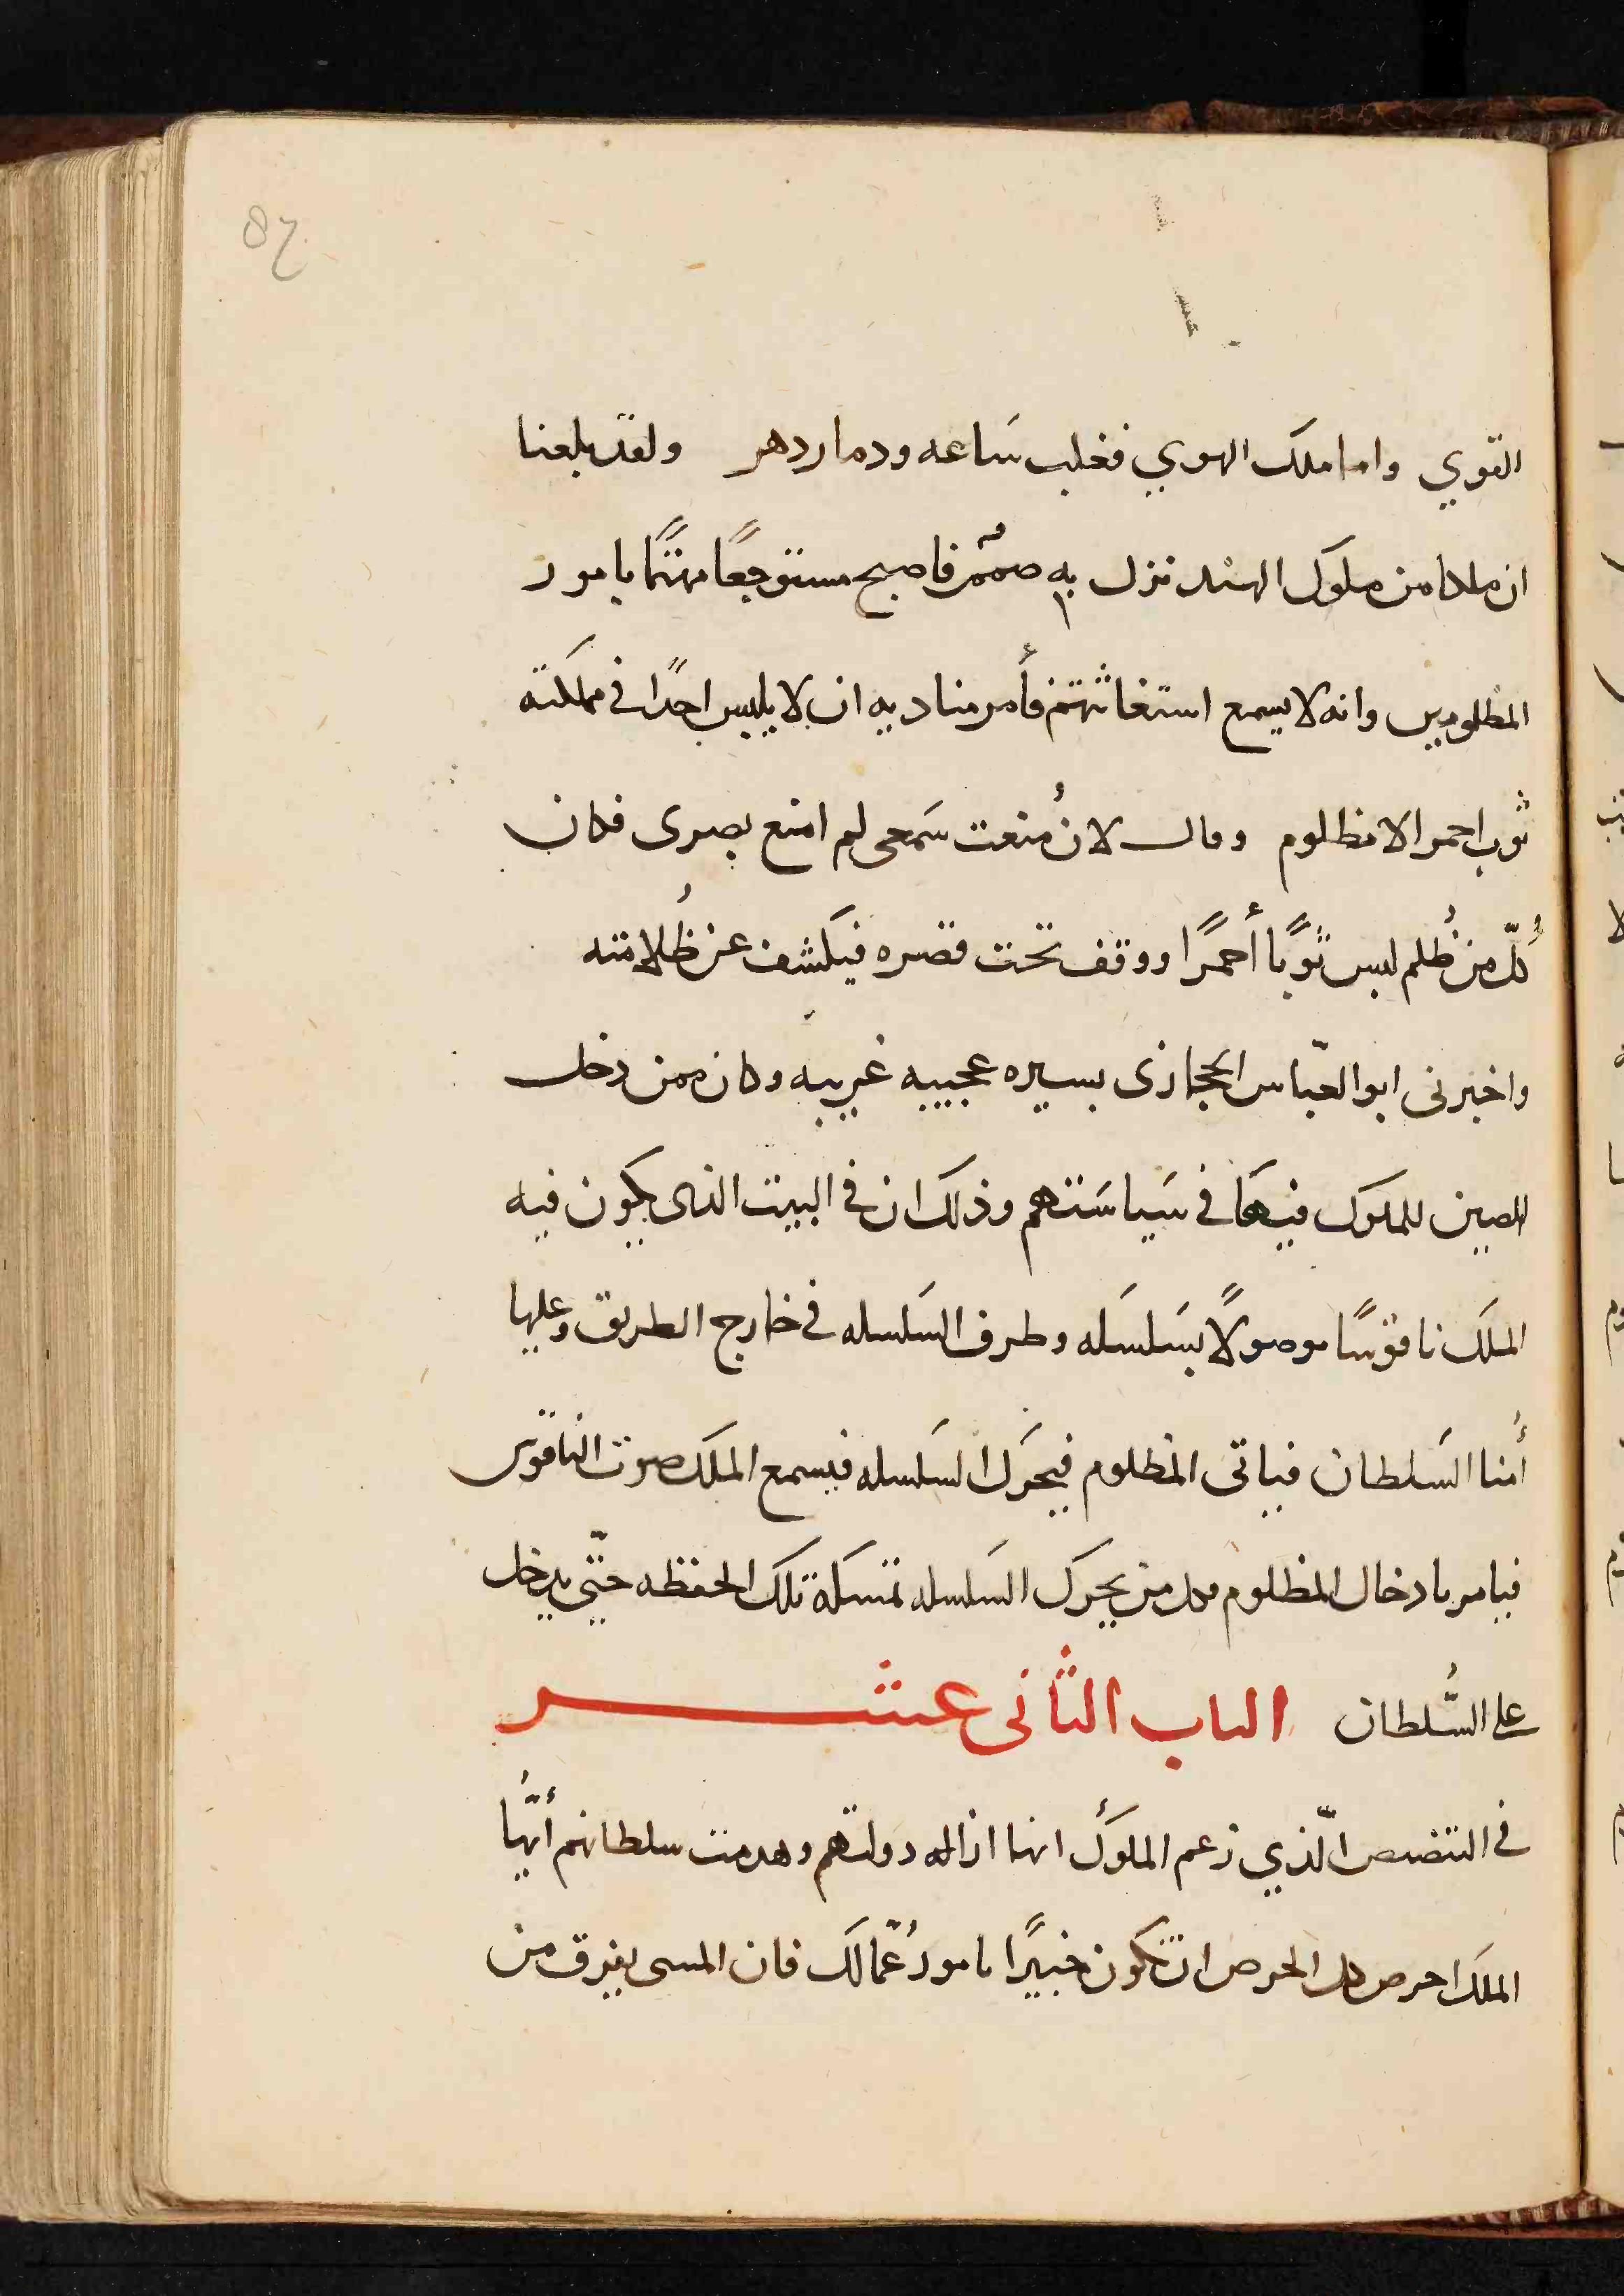 ٥٤
القوي واما ملك الهوي فغلب سَاعه ودمار دهر ولقد بلغنا
ان ملكا من ملوك الهند نزل به صممٌ فاصبح مستوجعًا مهتمًّا بامور
المظلومين وانه لا يسمع استغاثتهم فأمر مناديه ان لا يلبس احدًا في مملكته
ثوب احمر الا مظلوم وقال لان مُنعت سَمعى لم امنع بصرى فكان
كُلّ من ظُلم لبس ثوبًا أحمرًا ووقف تحت قصره فيكشف عن ظُلامته
واخبرنى ابو العبّاس الحجازى بسيره عجيبه غريبه وكان ممن دخل
الصين للملوك فيهَا في سَياسَتهم وذلك ان في البيت الذى يكون فيه
الملَك ناقوسًا موصولًا بسَلسَله وطرف السَلسله في خارج الطريق وعليها
أُمنا السَلطان فياتى المظلوم فيحَرك السَلسله فيسمع الملَك صوت الناقوس
فيامر بادخال المظلوم وكل من يحرك السَلسله تمسَكه تلك الحفظه حتّى يدخل
على السُّلطان الباب الثانى عشر
في التنصص الّذي زعم الملوكَ انها ازاله دولتهم وهدمت سلطانهم أيُّها
الملَك احرص كل الحرص ان تكون خبيرًا بامور عُمّالَك فان المسى يفرق من